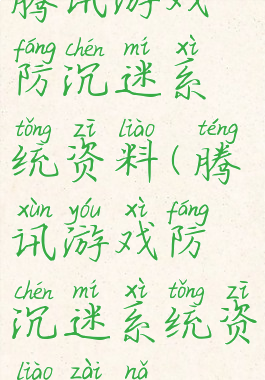 腾讯游戏
fáng chén mí xì
防沉迷系
tǒng zī liào téng
统资料(腾
xùn yóu xì fáng
讯游戏防
chén mí xì tǒng zī
沉迷系统资
liào zài nǎ